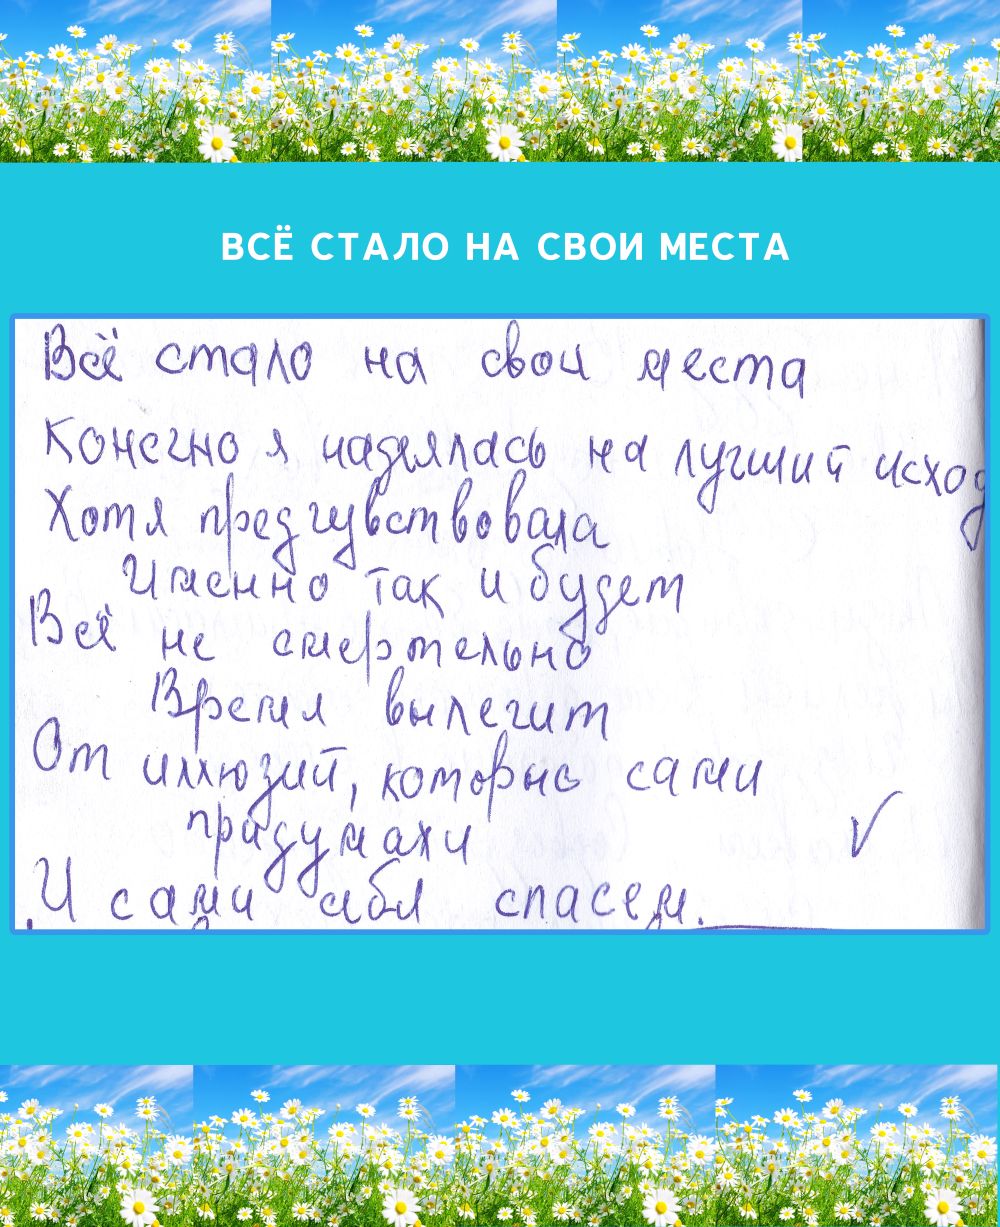 ВСЁ СТАЛО НА СВОИ МЕСТА
Всё стало на свои места
Конечно я надеялась на лучший исход
Хотя предчувствовала
Именно так и будет
Всё не смертельно
Время вылечит
От иллюзий, которые сами
придумали
И сами себя спасем.